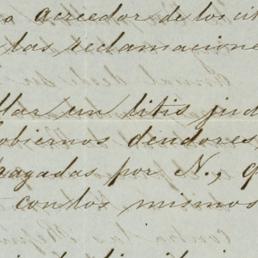 acreedor de los cit
las reclamacione
llar un litis jud
obiernos deudores,
pagadas por N., q
con los mismos